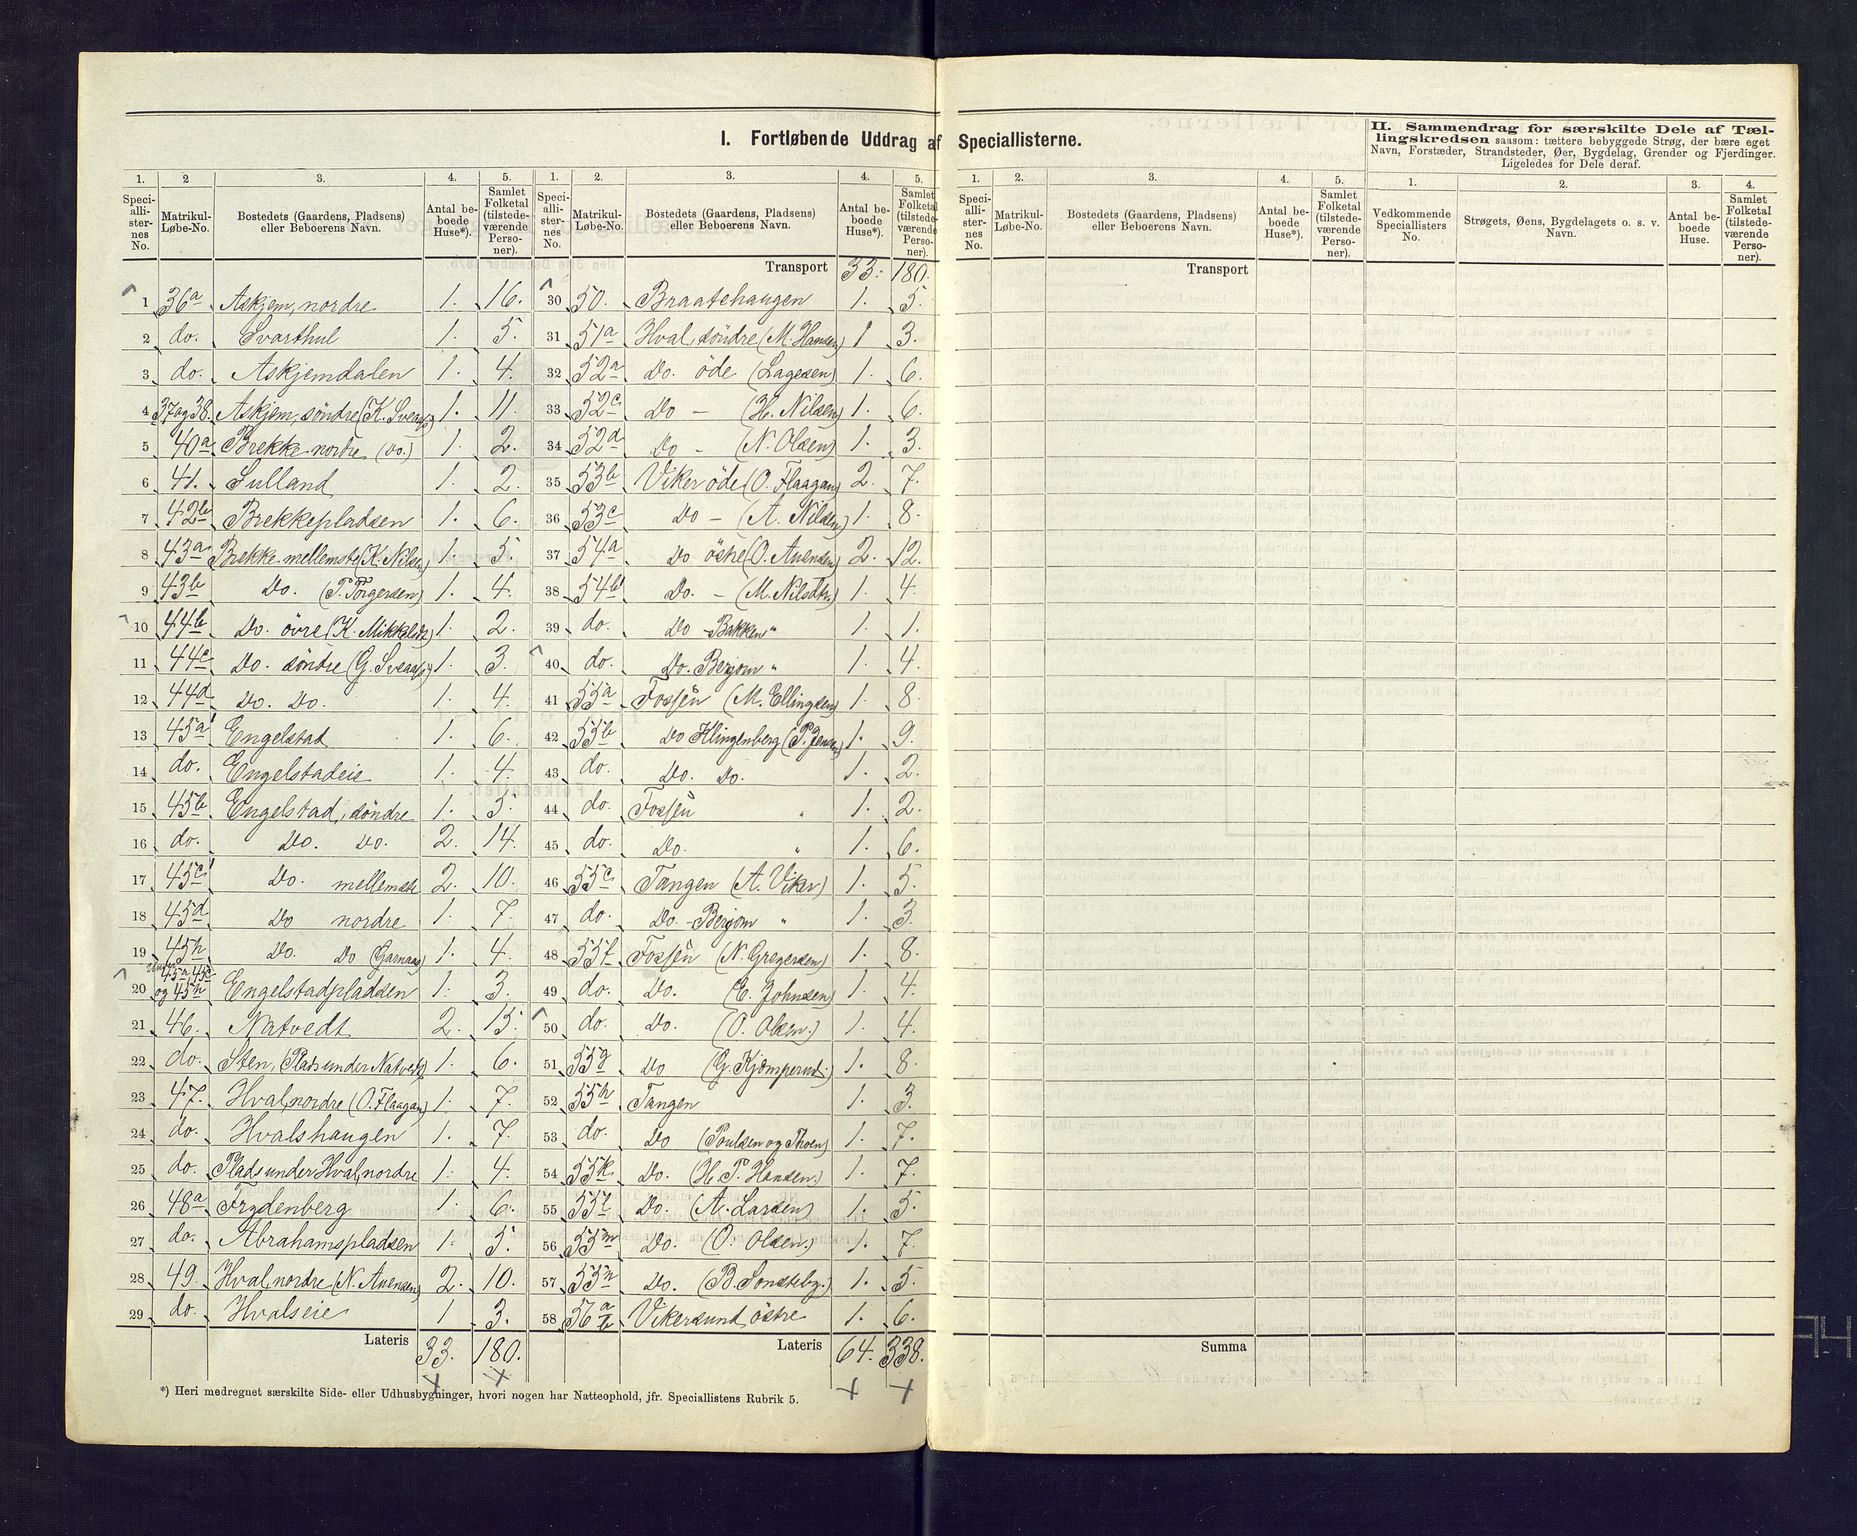 I. Fortløbende Uddrag af Speciallisterne.
II. Sammendrag for særskilte Dele af Tæl-
lingskredsen saasom: tættere bebyggede Strøg, der bære eget
Navn, Forstæder, Strandsteder, Øer, Bygdelag, Grender og Fjerdinger.
Ligeledes for Dele deraf.
1. 2 3. 4. 5.
Speciallisternes No. Matrikul-Løbe-No. Bostedets (Gaardens, Pladsens) eller Beboerens Navn. Antal beboede Huse*). Samlet Folketal (tilstedeværende Personer).
1 36a Askjem, nordre 1. 16.
2 do. Svarthul 1. 5.
3 do. Askjemdalen 1. 4.
4 37 og 38. Askjem, söndre (K. Sveaas) 1. 11.
5 40a Brekke nordre (do.) 1. 2.
6 41. Sulland 1. 2.
7 42b Brekkepladsen 1. 6.
8 43a Brekke mellemste (K. Nilsen) 1. 5.
9 43b Do. (T. Torgersen) 1. 4.
10 44b Do. övre (K. Mikkelsdt) 1. 2.
11 44c Do. söndre (G. Sveaas) 1. 3.
12 44d Do. Do. 1. 4.
13 45a Engelstad 1. 6.
14 do. Engelstadeie 1. 4.
15 45b Engelstad, söndre 1. 5.
16 do. Do. Do. 2. 14.
17 45c Do. mellemste 2. 10.
18 45d Do nordre 1. 7.
19 45h Do. Do (Garnaas) 1. 4.
20 Under 45a, 45c og 45h Engelstadpladsen 1. 3.
21 46. Natvedt 2. 15.
22 do. Sten, (Plads under Natvedt) 1. 6.
23 47. Hval, nordre (O. Flaagan) 1. 7.
24 do. Hvalshaugen 1. 7.
25 do. Plads under Hval, nordre 1. 4.
26 48a Frydenberg 1. 6.
27 do. Abrahamspladsen 1. 5.
28 49. Hval, nordre (N. Auensen) 2. 10.
29 do. Hvalseie 1 3.
Lateris 33. 180.
1. 2. 3. 4. 5.
Speciallisternes No. Matrikul-Løbe-No. Bostedets (Gaardens, Pladsens) eller Beboerens Navn. Antal beboede Huse*). Samlet Folketal (tilstedeværende Personer).
Transport 33. 180.
30 50. Braatehaugen 1. 5.
31 51a Hval, söndre (M. Hansen) 1 3.
32 52a Do. öde (Lagesen) 1. 6.
33 52c Do - (H. Nilsen) 1. 6.
34 52d Do - (N. Olsen) 1. 3.
35 53b Viker öde (O. Flaagan) 2. 7.
36 53c Do - (A. Nilsen) 1. 8.
37 54a Do östre (O. Auensen) 2. 12.
38 54b Do. - (M. Nilsdtr) 1. 4.
39 do. Do - Bakken " 1. 1.
40 do. Do. Bergom " 1. 4.
41 55a Fossen (M. Ellingsen) 1. 8.
42 55b Do Klingenberg (P. Jensen) 1. 9.
43 do. Do. Do. 1. 2.
44 do. Fossen " 1. 2.
45 do. Do. " 1. 6.
46 55c Tangen (A. Viker) 1. 5.
47 do. Do. - Bergom " 1. 3.
48 55f Fossen (N. Gregersen) 1. 8.
49 do. Do. (E. Johnsen) 1. 4.
50 do. Do. (O. Olsen.) 1. 4.
51 55g Do (G. Kjömperud.) 1. 8.
52 55h Tangen 1. 3.
53 do. Do (Poulsen og Thoen) 1. 7.
54 55k Do. (H. P. Hansen.) 1. 7.
55 55l Do. (A. Larsen) 1. 5.
56 55m Do. (O. Olsen.) 1. 7.
57 55n Do. (B. Sonsteby.) 1. 5.
58 56 a b Vikersund, östre 1. 6.
Lateris 64. 338.
*) Heri medregnet særskilte Side- eller Udhusbygninger, hvori nogen har Natteophold, jfr. Speciallistens Rubrik 5.
1. 2. 3. 4. 5.
Speciallisternes No. Matrikul-Løbe-No. Bostedets (Gaardens, Pladsens) eller Beboerens Navn. Antal beboede Huse*). Samlet Folketal (tilstedeværende Personer).
Transport
Summa
1. 2. 3. 4.
Vedkommende Speciallisters No. Strøgets, Øens, Bygdelagets o. s. v. Navn. Antal beboede Huse. Samlet Folketal (tilstedeværende Personer).